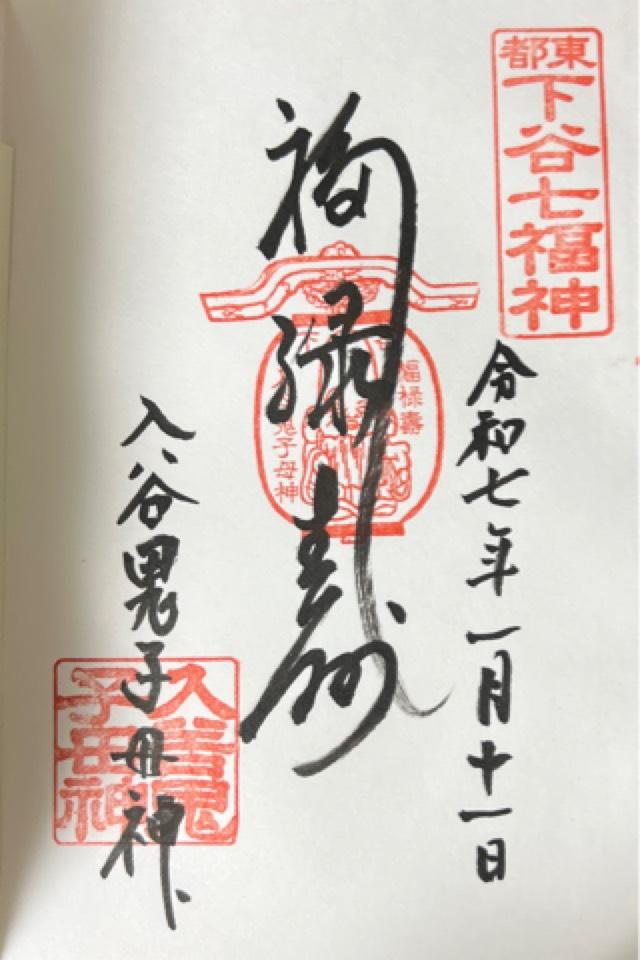 東都
下谷七福神
令和七年一月十一日
福禄寿
福禄壽
入谷鬼子母神
入谷鬼子母神